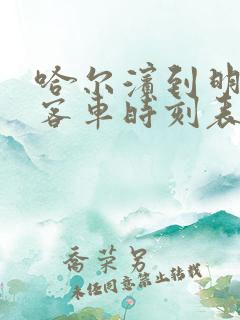 哈尔滨到明
客车时刻表
乔荣另
未经同意禁止转载